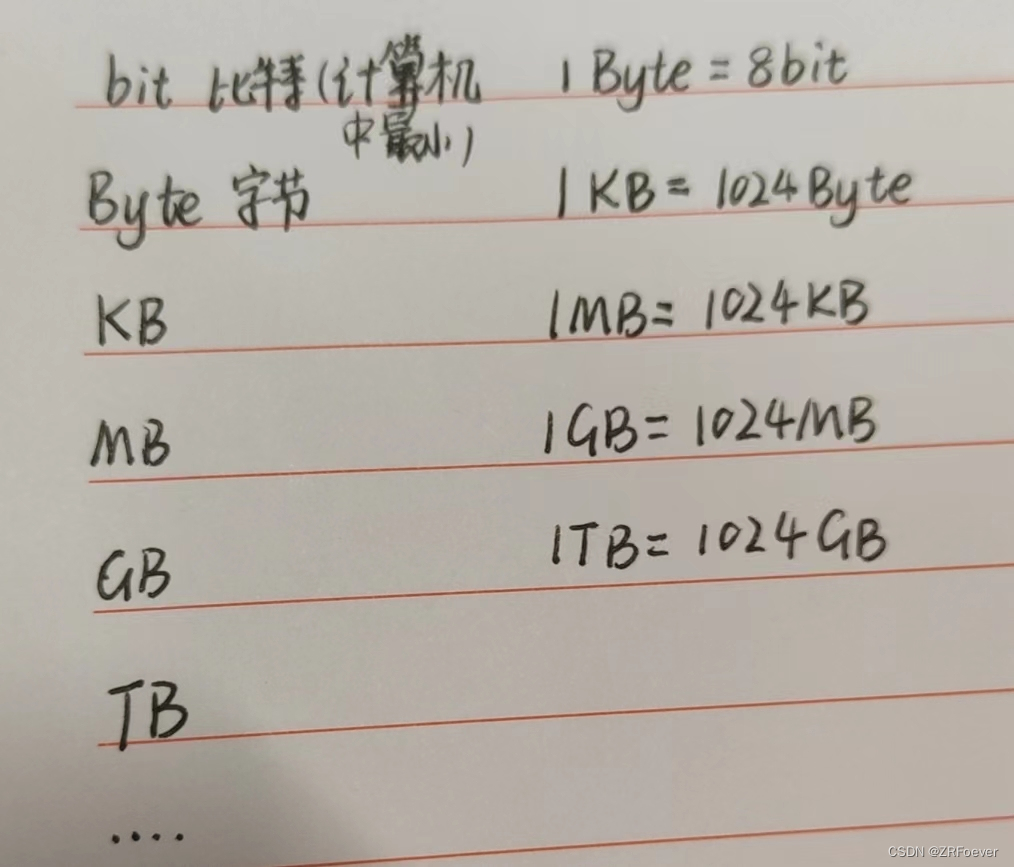 bit 比特(计算机 1 Byte = 8bit
中最小)
Byte 字节 1 KB = 1024Byte
KB 1MB = 1024KB
MB 1GB = 1024MB
GB 1TB = 1024GB
TB
....
CSDN @ZRFoever